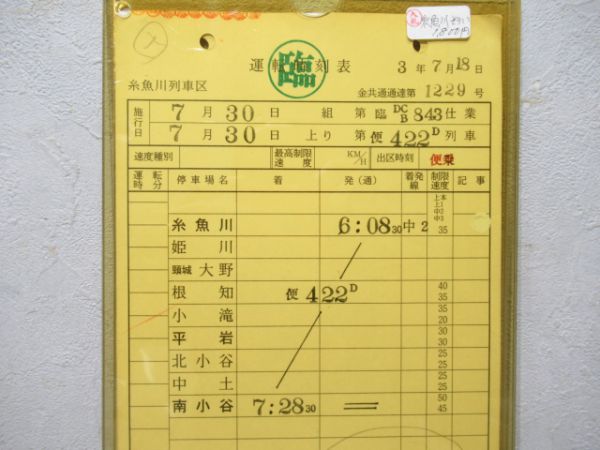 糸魚川
1,800円
臨
運転時刻表
3年7月18日
糸魚川列車区
金共通通達第1229号
施行日
7月30日 組 第臨DCB843仕業
7月30日 上り 第便422D列車
速度種別 最高制限速度 KM/H 出区時刻 便乗
運転時分 停車場名 着 発(通) 着発線 制限速度 記事
上本
上1
中2
中3
糸魚川 6:08 30 中2 35
姫川
頸城大野
根知 便422D 40 35
小滝 35 20
平岩 30 30
北小谷 25 25
中土 25 25
南小谷 7:28 30 50 45